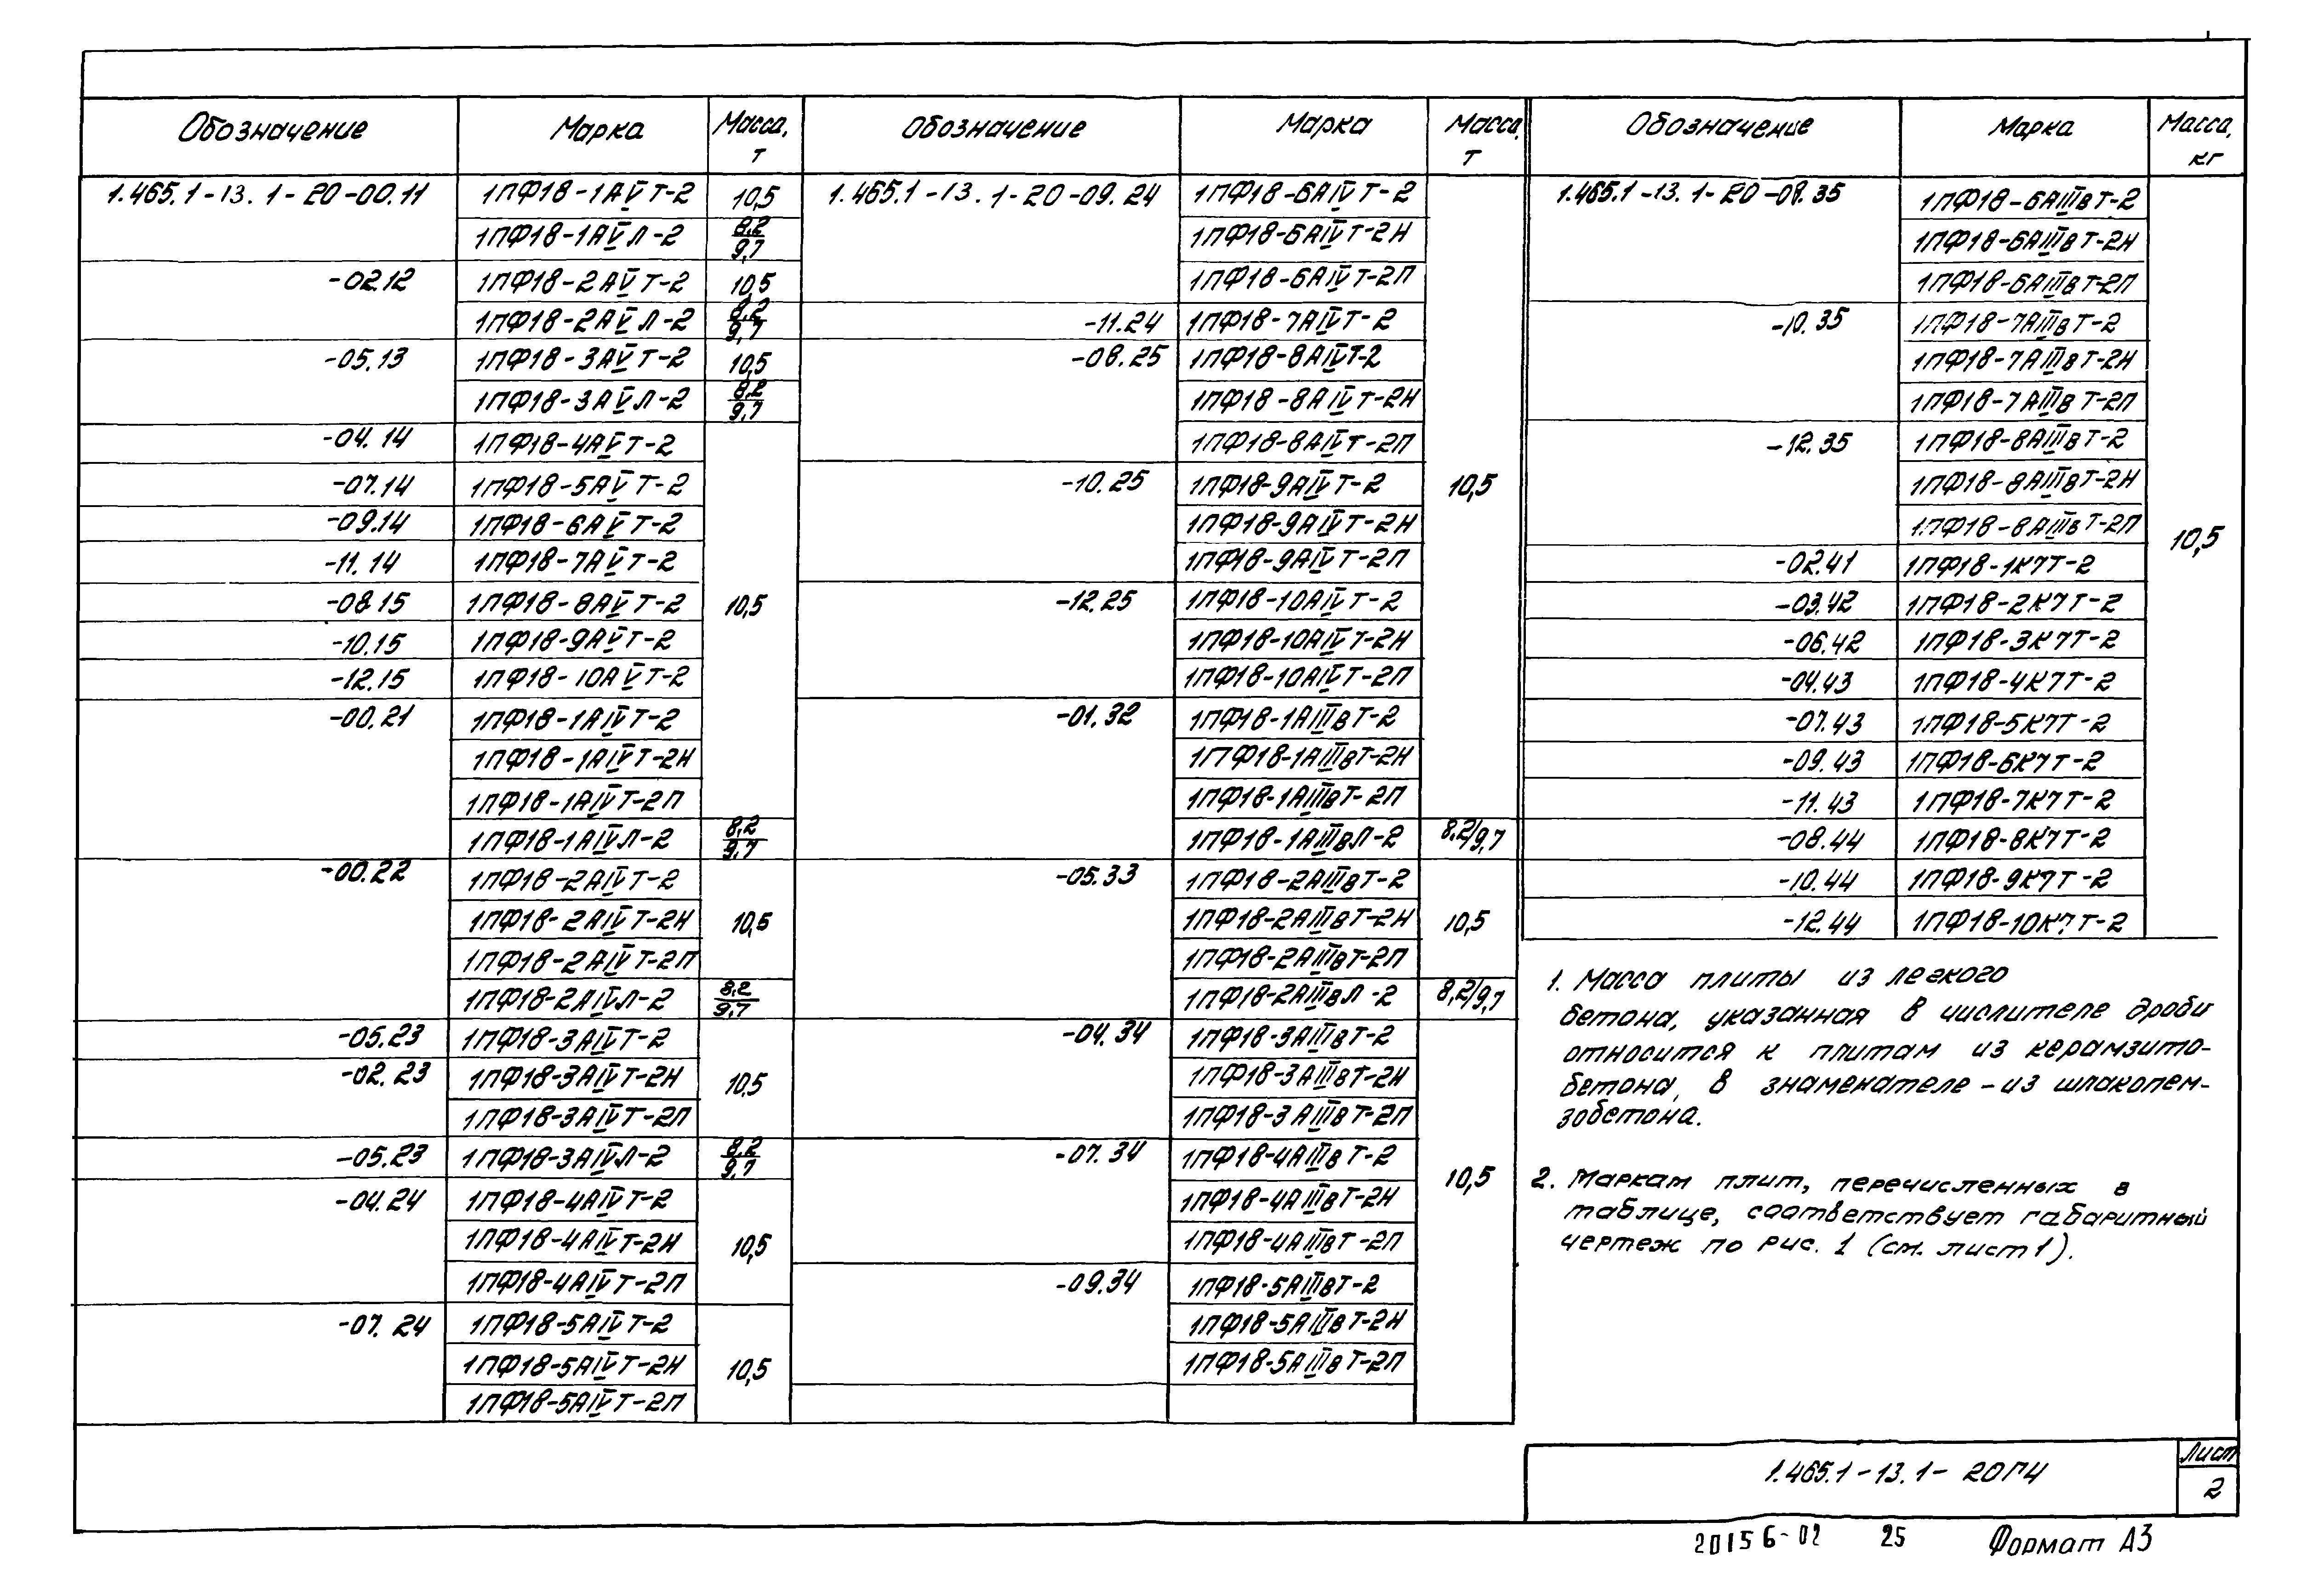 Обозначение Марка Масса, т
1.465.1-13.1-20-00.11 1ПФ18-1АV Т-2 10,5
1ПФ18-1АV Л-2 8,2/9,7
-02.12 1ПФ18-2АV Т-2 10,5
1ПФ18-2АV Л-2 8,2/9,7
-05.13 1ПФ18-3АV Т-2 10,5
1ПФ18-3АV Л-2 8,2/9,7
-04.14 1ПФ18-4АV Т-2
-07.14 1ПФ18-5АV Т-2
-09.14 1ПФ18-6АV Т-2
-11.14 1ПФ18-7АV Т-2
-08.15 1ПФ18-8АV Т-2 10,5
-10.15 1ПФ18-9АV Т-2
-12.15 1ПФ18-10АV Т-2
-00.21 1ПФ18-1АIV Т-2
1ПФ18-1АIV Т-2Н
1ПФ18-1АIV Т-2П
1ПФ18-1АIV Л-2 8,2/9,7
-00.22 1ПФ18-2АIV Т-2
1ПФ18-2АIV Т-2Н 10,5
1ПФ18-2АIV Т-2П
1ПФ18-2АIV Л-2 8,2/9,7
-05.23 1ПФ18-3АIV Т-2
-02.23 1ПФ18-3АIV Т-2Н 10,5
1ПФ18-3АIV Т-2П
-05.23 1ПФ18-3АIV Л-2 8,2/9,7
-04.24 1ПФ18-4АIV Т-2
1ПФ18-4АIV Т-2Н 10,5
1ПФ18-4АIV Т-2П
-07.24 1ПФ18-5АIV Т-2
1ПФ18-5АIV Т-2Н 10,5
1ПФ18-5АIV Т-2П
Обозначение Марка Масса, т
1.465.1-13.1-20-09.24 1ПФ18-6АIV Т-2
1ПФ18-6АIV Т-2Н
1ПФ18-6АIV Т-2П
-11.24 1ПФ18-7АIV Т-2
-08.25 1ПФ18-8АIV Т-2
1ПФ18-8АIV Т-2Н
1ПФ18-8АIV Т-2П
-10.25 1ПФ18-9АIV Т-2 10,5
1ПФ18-9АIV Т-2Н
1ПФ18-9АIV Т-2П
-12.25 1ПФ18-10АIV Т-2
1ПФ18-10АIV Т-2Н
1ПФ18-10АIV Т-2П
-01.32 1ПФ18-1АIIIв Т-2
1ПФ18-1АIIIв Т-2Н
1ПФ18-1АIIIв Т-2П
1ПФ18-1АIIIв Л-2 8,2/9,7
-05.33 1ПФ18-2АIIIв Т-2
1ПФ18-2АIIIв Т-2Н 10,5
1ПФ18-2АIIIв Т-2П
1ПФ18-2АIIIв Л-2 8,2/9,7
-04.34 1ПФ18-3АIIIв Т-2
1ПФ18-3АIIIв Т-2Н
1ПФ18-3АIIIв Т-2П
-07.34 1ПФ18-4АIIIв Т-2 10,5
1ПФ18-4АIIIв Т-2Н
1ПФ18-4АIIIв Т-2П
-09.34 1ПФ18-5АIIIв Т-2
1ПФ18-5АIIIв Т-2Н
1ПФ18-5АIIIв Т-2П
Обозначение Марка Масса, кг
1.465.1-13.1-20-09.35 1ПФ18-6АIIIв Т-2
1ПФ18-6АIIIв Т-2Н
1ПФ18-6АIIIв Т-2П
-10.35 1ПФ18-7АIIIв Т-2
1ПФ18-7АIIIв Т-2Н
1ПФ18-7АIIIв Т-2П
-12.35 1ПФ18-8АIIIв Т-2
1ПФ18-8АIIIв Т-2Н
1ПФ18-8АIIIв Т-2П 10,5
-02.41 1ПФ18-1К7Т-2
-03.42 1ПФ18-2К7Т-2
-06.42 1ПФ18-3К7Т-2
-04.43 1ПФ18-4К7Т-2
-07.43 1ПФ18-5К7Т-2
-09.43 1ПФ18-6К7Т-2
-11.43 1ПФ18-7К7Т-2
-08.44 1ПФ18-8К7Т-2
-10.44 1ПФ18-9К7Т-2
-12.44 1ПФ18-10К7Т-2
1. Масса плиты из легкого
бетона, указанная в числителе дроби
относится к плитам из керамзито-
бетона, в знаменателе - из шлакопем-
зобетона.
2. Маркам плит, перечисленных в
таблице, соответствует габаритный
чертеж по рис. 1 (см. лист 1).
1.465.1-13.1-20ГЧ
Лист
2
20156-02 25 Формат А3